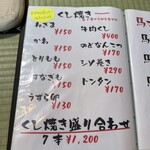 くし焼き
ねぎま
¥150
かわ
¥150
とりもも
¥150
すなぎも
¥150
うずら卵
¥130
牛肉くし
¥400
のどなんこつ
¥170
シソ巻き
¥290
トンタン
¥170
くし焼き盛り合わせ
7本 ¥1,200
馬